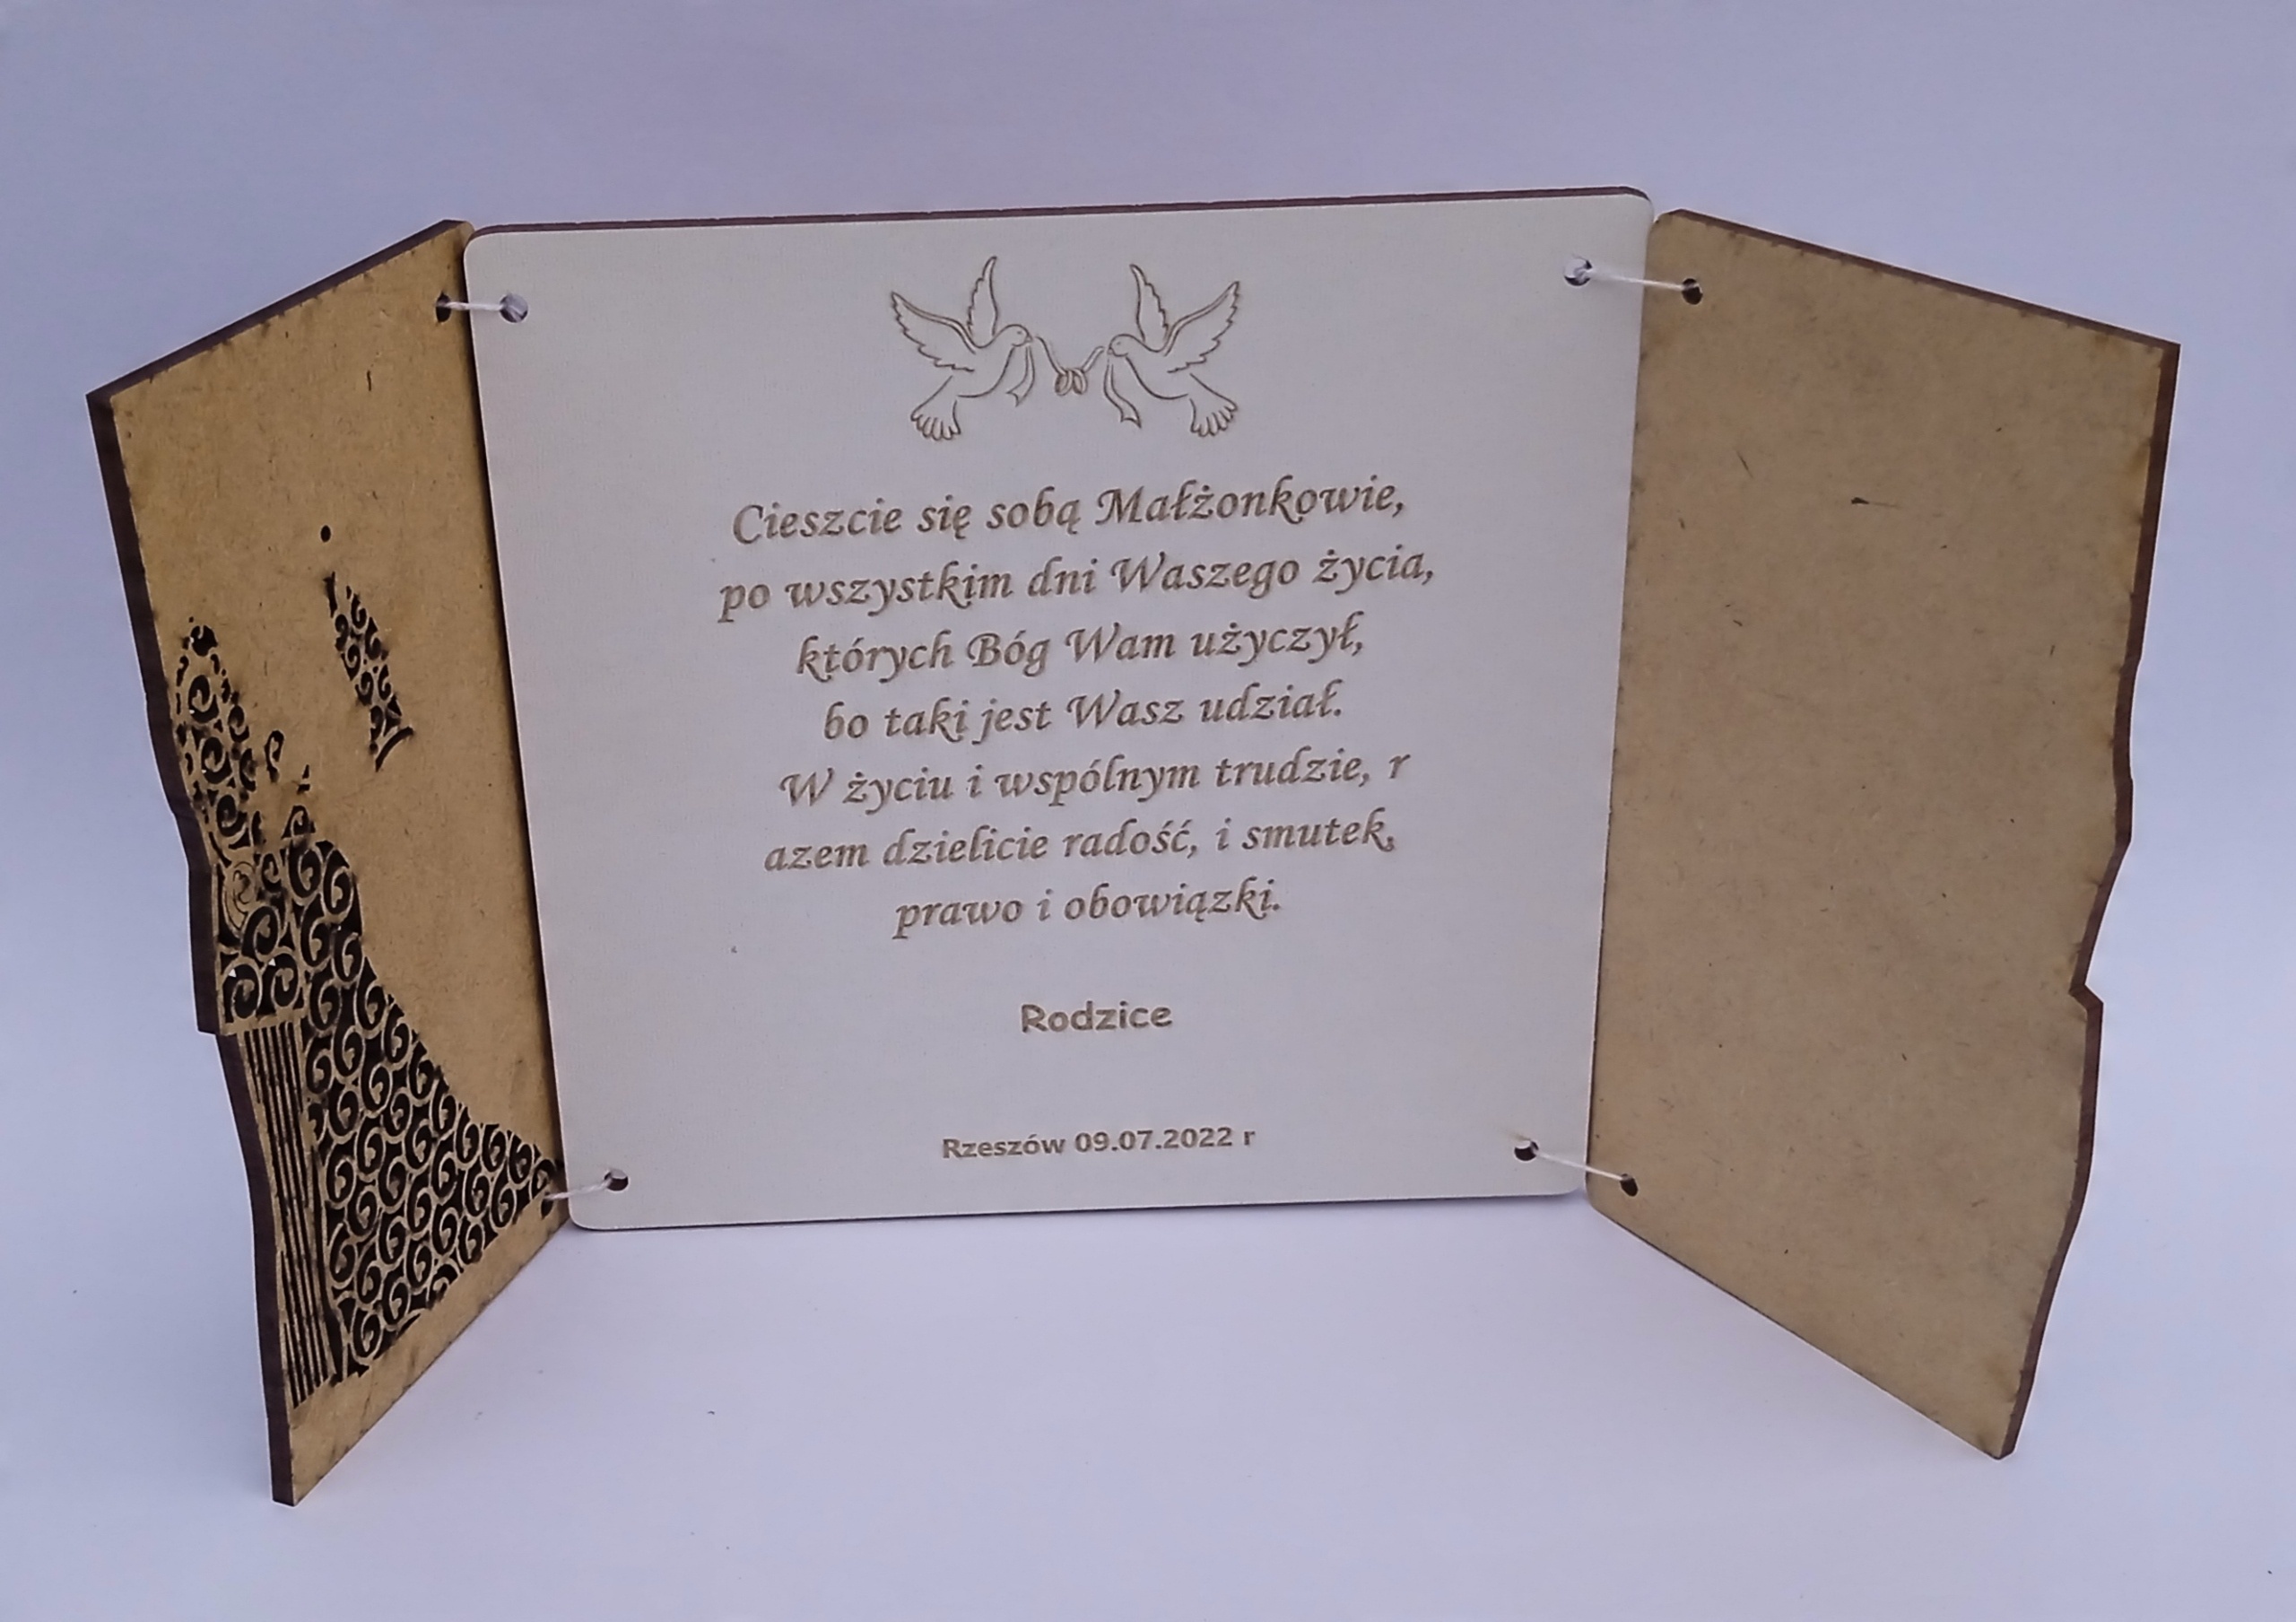 Cieszcie się sobą Małżonkowie,
po wszystkim dni Waszego życia,
których Bóg Wam użyczył,
bo taki jest Wasz udział.
W życiu i wspólnym trudzie, r
azem dzielicie radość, i smutek,
prawo i obowiązki.
Rodzice
Rzeszów 09.07.2022 r